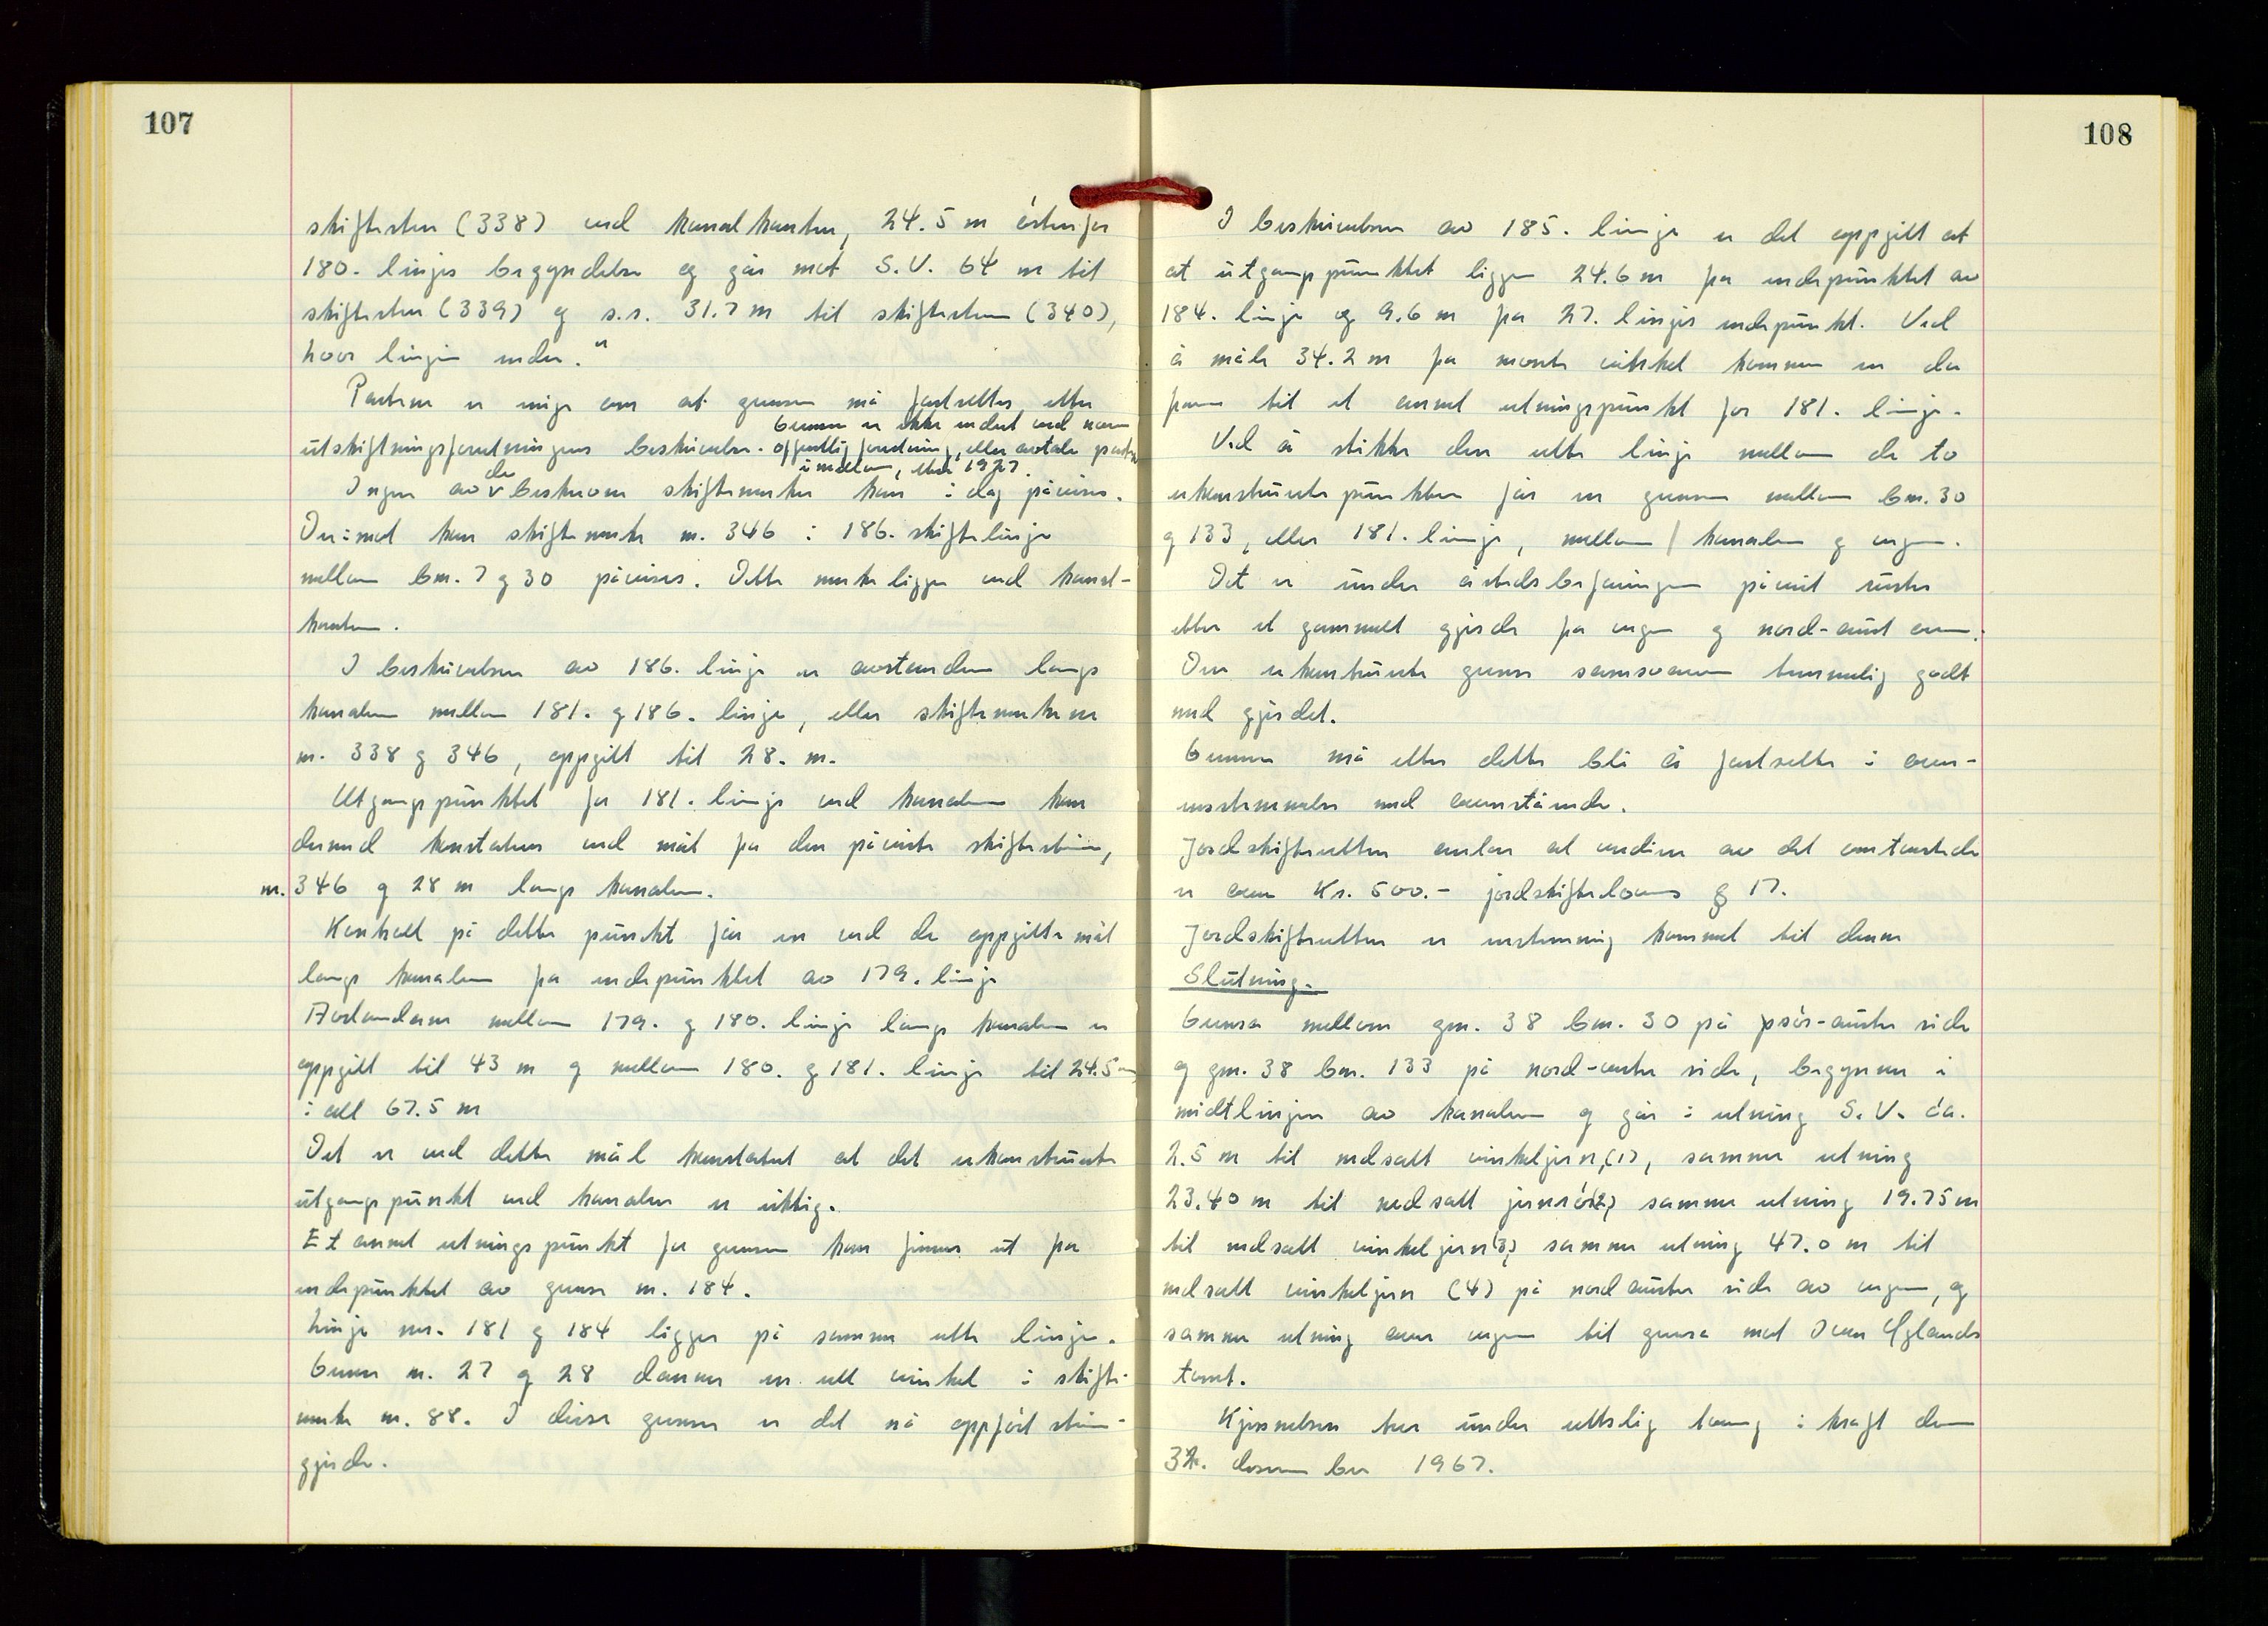 107
skiftestein (338) ved kanalkanten, 24.5 m østenfor
180. linjes begyndelse og går mot S.V. 64 m til
skiftestein (339) og s.r. 31.7 m til skiftestein (340),
hvor linjen ender."
Partene er enige om at grensen må fastsettes etter
utskiftningsforretningens beskrivelse. Grensen er ikke endret ved noen
offentlig forretning, eller avtale partene
imellom, etter 1927.
Ingen av de beskrevne skiftemerker kan i dag påvises.
Derimot kan skiftemerke nr. 346 i 186. skiftelinje
mellom bnr. 7 og 30 påvises. Dette merke ligger ved kanal-
kanten.
I beskrivelsen av 186. linje er avstanden langs
kanalen mellom 181. og 186. linje, eller skiftemerkene
nr. 338 og 346, oppgitt til 28. m.
Utgangspunktet for 181. linje ved kanalen kan
dermed konstateres ved mål fra den påviste skiftestein,
nr. 346 og 28 m langs kanalen.
Kontroll på dette punkt får en ved de oppgitte mål
langs kanalen fra endepunktet av 179. linje
Avstandene mellom 179. og 180. linje langs kanalen er
oppgitt til 43 m og mellom 180. og 181. linje til 24.5 m
i alt 67.5 m
Det er ved dette mål konstatert at det rekonstruerte
utgangspunkt ved kanalen er riktig.
Et annet retningspunkt for grensen kan finnes ut fra
endepunktet av grense nr. 184.
Linje nr. 181 og 184 ligger på samme rette linje.
Grense nr. 27 og 28 danner en rett vinkel i skifte-
merke nr. 88. I disse grenser er det nå oppført stein-
gjerde.
108
I beskrivelsen av 185. linje er det oppgitt at
at utgangspunktet ligger 24.6 m fra endepunktet av
184. linje og 9.6 m fra 27. linjes endepunkt. Ved
å måle 34.2 m fra nevnte vinkel kommer en da
fram til et annet retningspunkt for 181. linje.
Ved å stikke den rette linje mellom de to
rekonstruerte punkter får en grensen mellom bnr. 30
og 133, eller 181. linje, mellom kanalen og vegen.
Det er under åstedsbefaringen påvist rester
etter et gammelt gjerde fra vegen og nord-aust om.
Den rekonstruerte grense samsvarer temmelig godt
med gjerdet.
Grensen må etter dette bli å fastsette i over-
ensstemmelse med ovenstående.
Jordskifteretten antar at verdien av det omtvistede
er over kr. 500.- jordskiftelovens § 17.
Jordskifteretten er enstemmig kommet til denne
Slutning.
Grensa mellom gnr. 38 bnr. 30 på sør-austre side
og gnr. 38 bnr. 133 på nord-vestre side, begynner i
midtlinjen av kanalen og går i retning S.V. ca.
2.5 m til nedsatt vinkeljern, (1), samme retning
23.40 m til nedsatt jernrør (2) samme retning 19.75 m
til nedsatt vinkeljern (3), samme retning 47.0 m til
nedsatt vinkeljern (4) på nordaustre side av vegen, og
samme retning over vegen til grensa mot Iven Yglands
tomt.
Kjennelsen trer under rettslig tvang i kraft den
32. desember 1967.